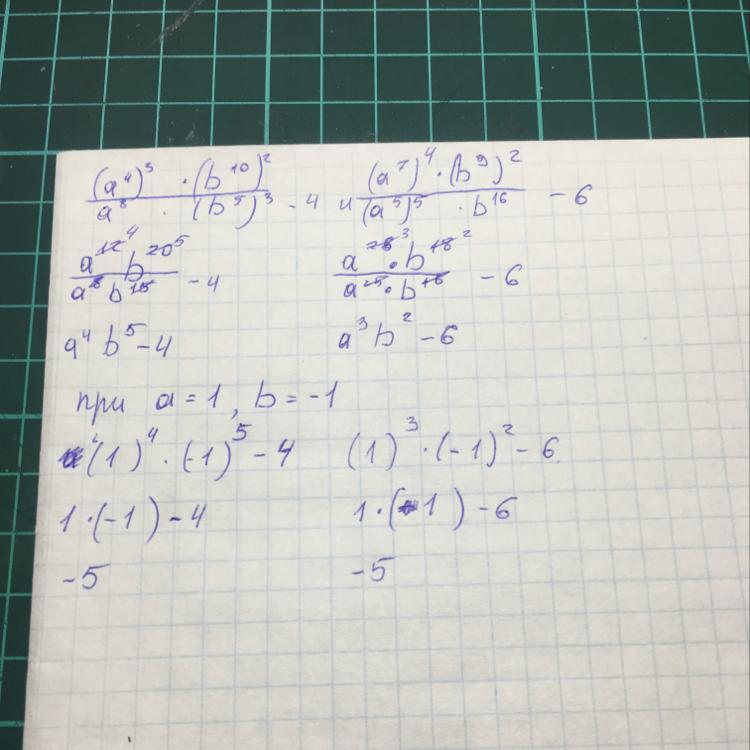 (a⁴)³ · (b¹⁰)² / a⁸ · (b⁵)³ - 4 и (a⁷)⁴ · (b⁹)² / (a⁵)⁵ · b¹⁶ - 6
a¹²⁴ b²⁰⁵ / a⁸ b¹⁵ - 4 a²⁸³ · b¹⁸² / a²⁵ · b¹⁶ - 6
a⁴ b⁵ - 4 a³ b² - 6
при a = 1, b = -1
(1)⁴ · (-1)⁵ - 4 (1)³ · (-1)² - 6
1 · (-1) - 4 1 · (1) - 6
-5 -5